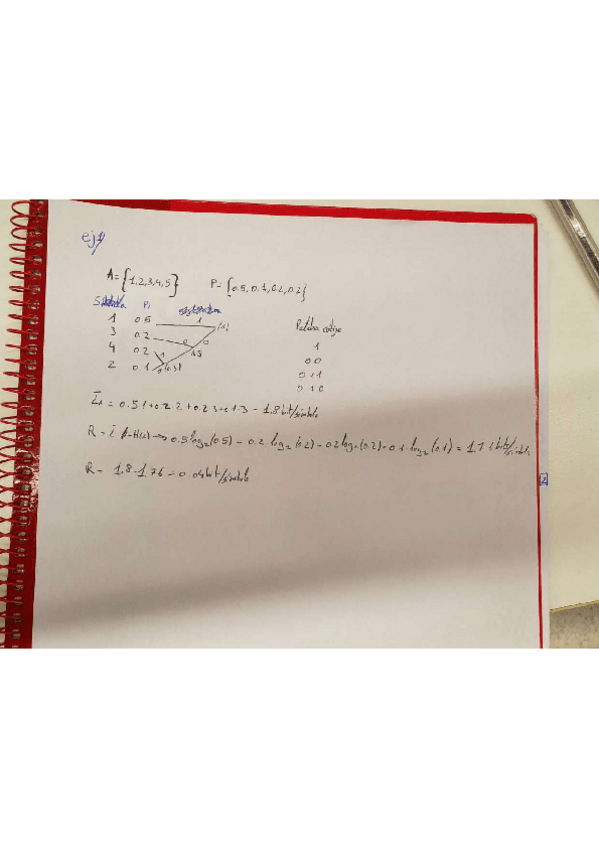 ej1
A={1,2,3,4,5} P={0.5,0.1,0.2,0.2}
Pi
1 0.5 1 (1)
3 0.2 0 0.5 0
4 0.2 1
2 0.1 0 (0.3)
Palabra código
1
00
011
010
L = 0.5·1+0.2·2+0.2·3+0.1·3 = 1.8 bit/símbolo
R = L - H(x) → 0.5 log₂(0.5) - 0.2 log₂(0.2) - 0.2 log₂(0.2) - 0.1 log₂(0.1) = 1.76 bits/símbolo
R = 1.8-1.76 = 0.04 bit/símbolo